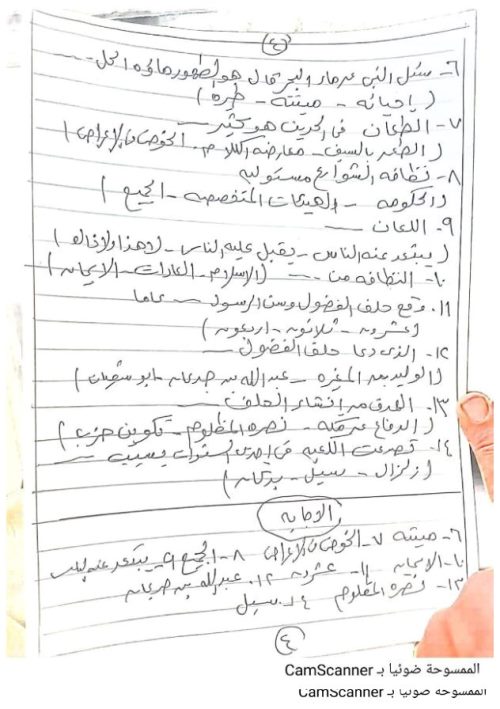 (٤)
٦- سئل النبي عن ماء البحر قال هو الطهور ماؤه الحل ---
( أحيائه - ميتته - طيره )
٧- الطعان في الحديث هو كثير ---
( الطعن بالسيف - معارضة الكلام - الخوض في الأعراض )
٨- نظافة الشوارع مسئولية
( الحكومة - الهيئات المتخصصة - الجميع )
٩- اللعان ---
( يبتعد عنه الناس - يقبل عليه الناس - لا هذا ولا ذاك )
١٠- النظافة من --- ( الإسلام - العادات - الإيمان )
١١- وقع حلف الفضول وسن الرسول --- عاما
( عشرون - ثلاثون - أربعون )
١٢- الذي دعا حلف الفضول ---
( الوليد بن المغيرة - عبد الله بن جدعان - أبو سفيان )
١٣- الهدف من إنشاء الحلف ---
( الدفاع عن مكة - نصرة المظلوم - تكوين حزب )
١٤- تصدعت الكعبة في إحدى السنوات بسبب ---
( زلزال - سيل - بركان )
الإجابة
٦- ميتته ٧- الخوض في الأعراض ٨- الجميع ٩- يبتعد عنه الناس
١٠- الإيمان ١١- عشرون ١٢- عبد الله بن جدعان
١٣- نصرة المظلوم ١٤- سيل
(٤)
الممسوحة ضوئيا بـ CamScanner
الممسوحة ضوئيا بـ CamScanner